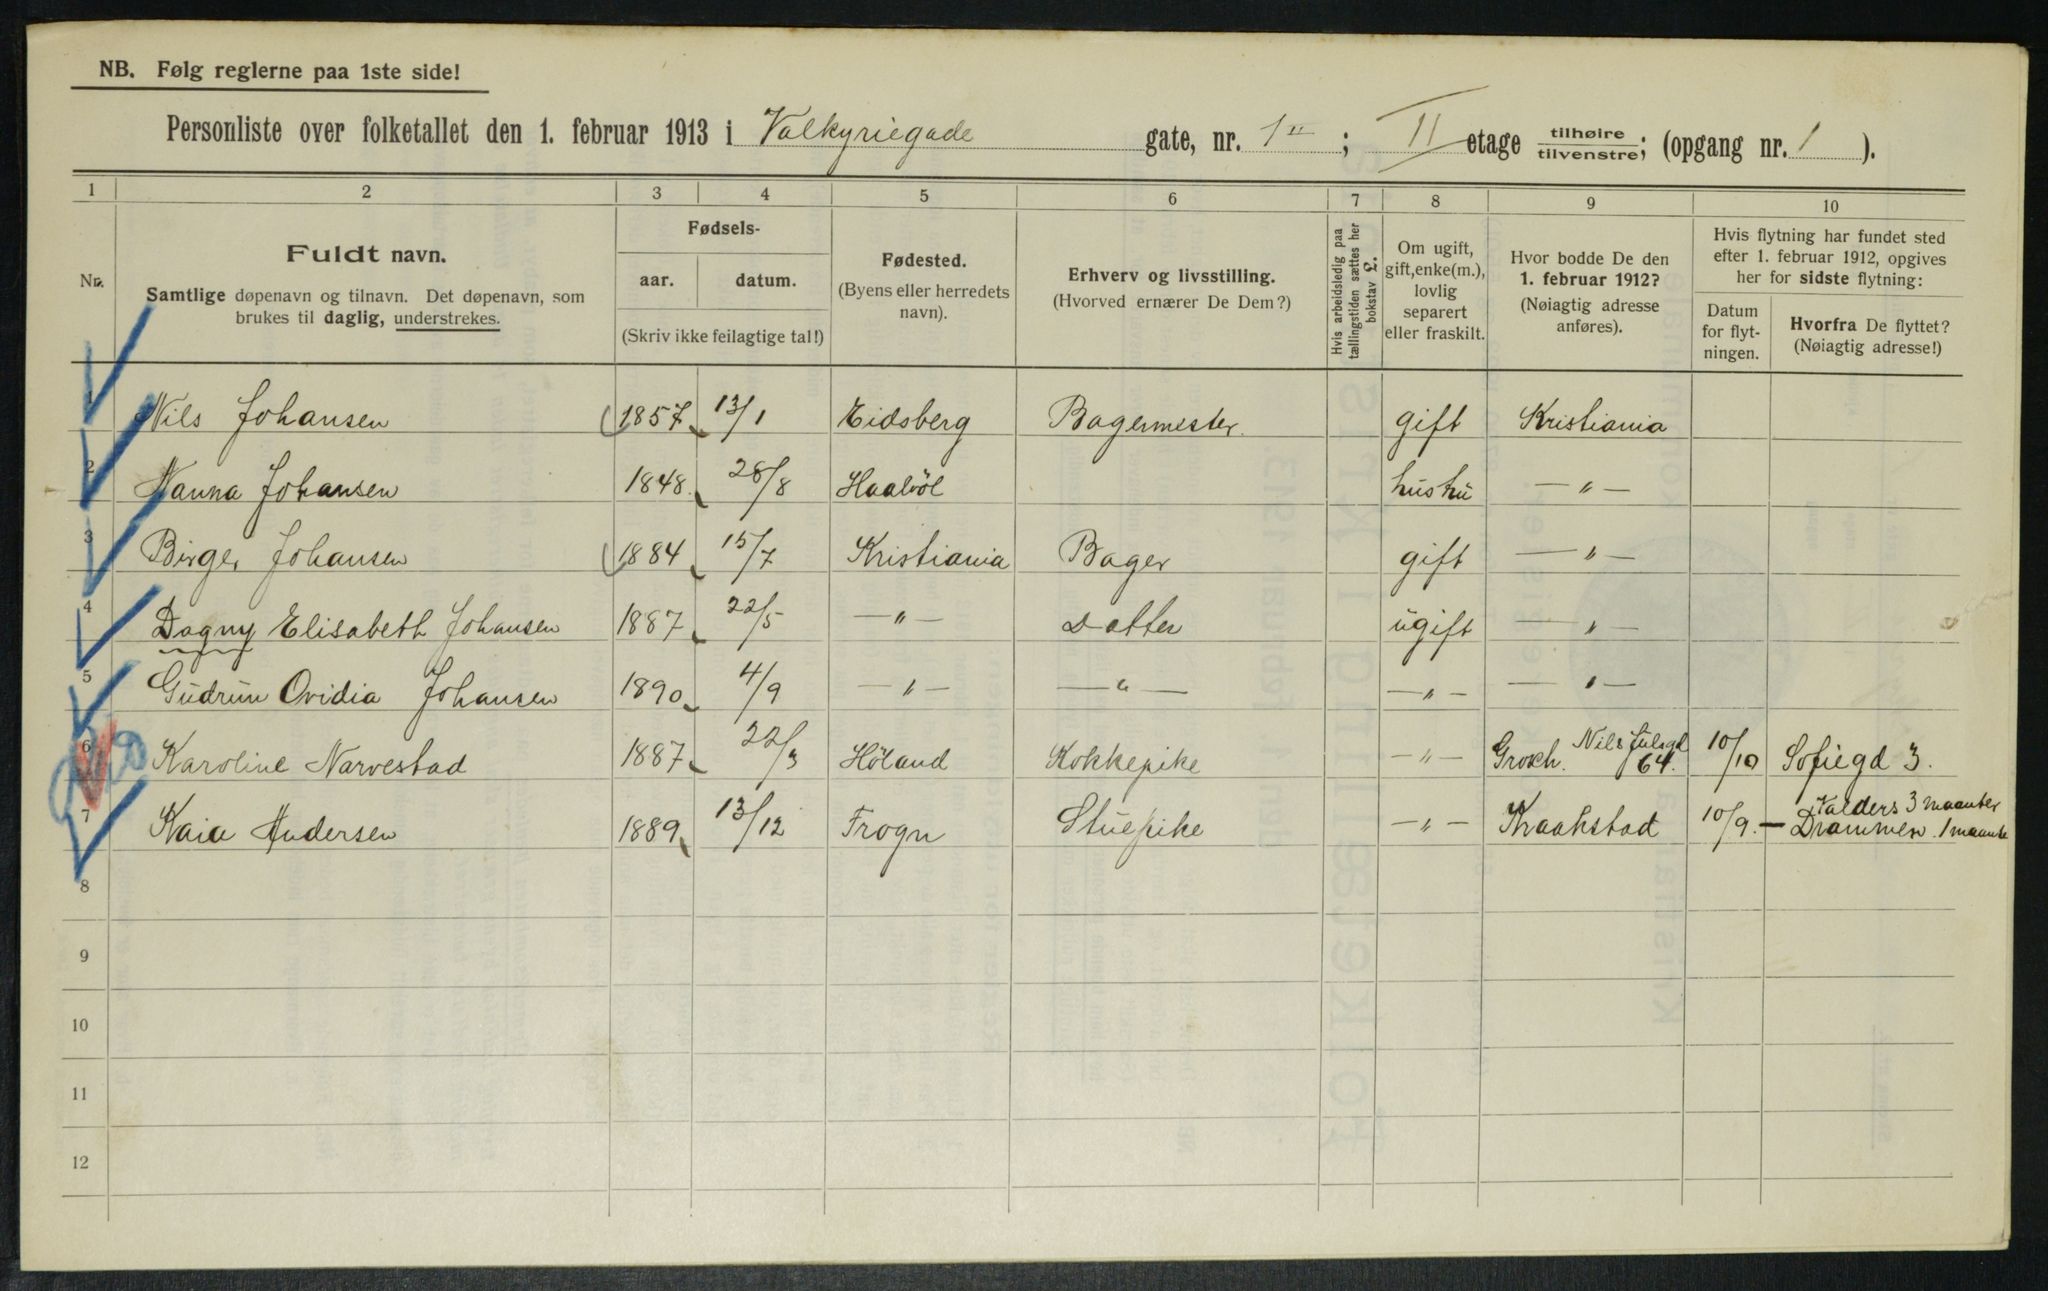 NB. Følg reglerne paa 1ste side!
Personliste over folketallet den 1. februar 1913 i Valkyriegade gate, nr. 1 II; II etage tilhøire/tilvenstre; (opgang nr. 1).
1 2 3 4 5 6 7 8 9 10
Nr.
Fuldt navn.
Samtlige døpenavn og tilnavn. Det døpenavn, som
brukes til daglig, understrekes.
Fødsels-
aar. datum.
(Skriv ikke feilagtige tal!)
Fødested.
(Byens eller herredets
navn).
Erhverv og livsstilling.
(Hvorved ernærer De Dem?)
Hvis arbeidsledig paa
tællingstiden sættes her
bokstav L.
Om ugift,
gift, enke(m.),
lovlig
separert
eller fraskilt.
Hvor bodde De den
1. februar 1912?
(Nøiagtig adresse
anføres).
Hvis flytning har fundet sted
efter 1. februar 1912, opgives
her for sidste flytning:
Datum
for flyt-
ningen.
Hvorfra De flyttet?
(Nøiagtig adresse!)
1 Nils Johansen 1857 13/1 Eidsberg Bagermester. gift Kristiania
2 Nanna Johansen 1848. 28/8 Haabøl hustru — " —
3 Birger Johansen 1884 15/7 Kristiania Bager gift — " —
4 Dagny Elisabeth Johansen 1887 22/5 — " — Datter ugift — " —
5 Gudrun Ovidia Johansen 1890 4/9 — " — — " — — " — — " —
6 Karoline Narvestad 1887 22/3 Höland Kokkepike — " — Grosch. Nils Julsgd 64. 10/10 Sofiegd 3.
7 Kaia Andersen 1889 13/12 Frogn Stuepike — " — Kraakstad 10/9. — Valders 3 maanter
Drammen. 1 maante
8
9
10
11
12